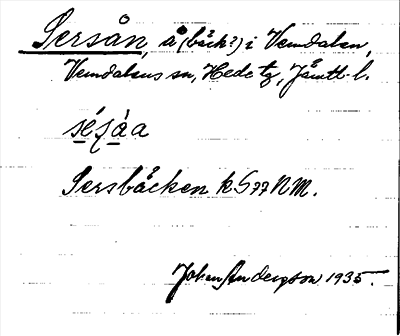 Sersån, å (bäck?) i Vemdalen,
Vemdalens sn, Hede tg, Jämtl. l.
séʃàa
Sersbäcken k G 77 NM.
Johan Anderson 1935.